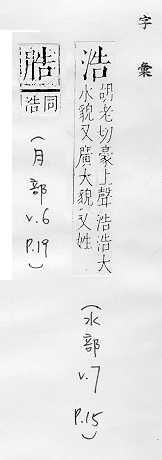 字彙
浩
胡老切豪上聲浩浩大
水貌又廣大貌又姓
(水部
v.7
P.15)
澔
同浩
(月部
v.6
P.19)